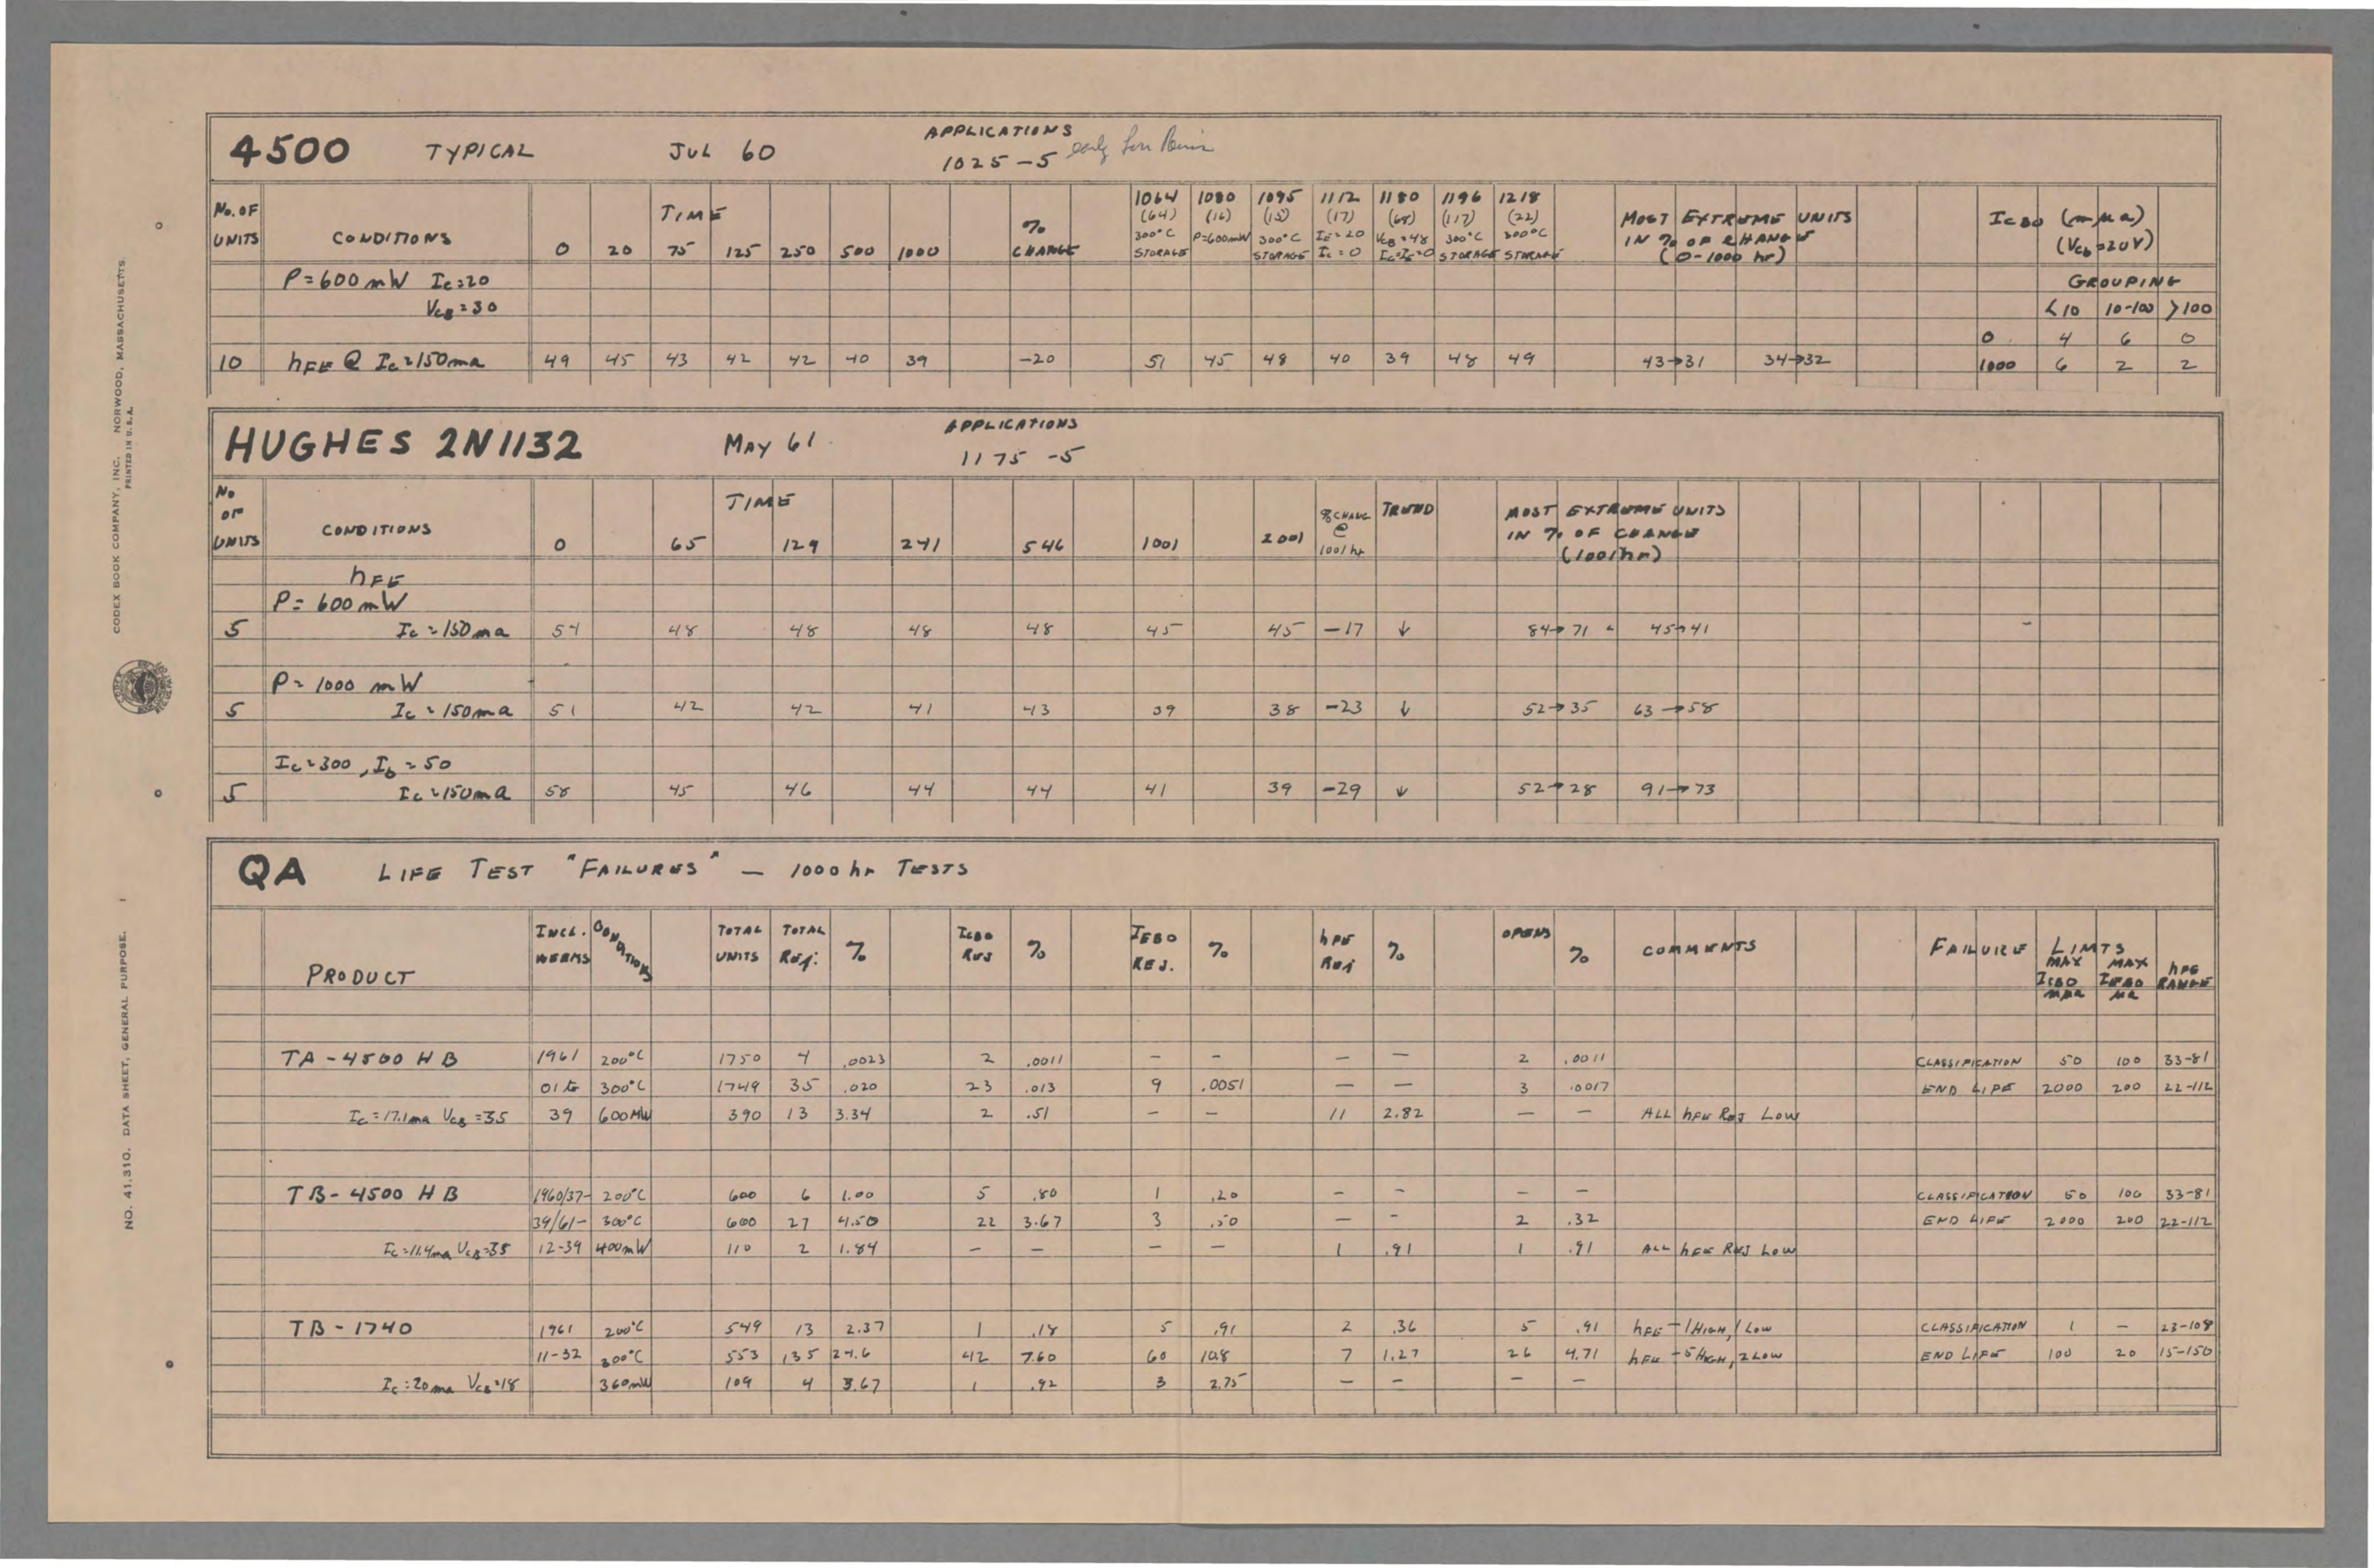 4500 TYPICAL JUL 60 APPLICATIONS 1025-5 early
No. OF UNITS CONDITIONS TIME 0 20 75 125 250 500 1000 % CHANGE
1064 (64) 300°C STORAGE
1080 (16) P=600mW
1095 (15) 300°C STORAGE
1112 (17) IE=20 Ic=0
1180 (68) VCB=48 Ic=IE=0
1196 (117) 300°C STORAGE
1218 (22) 300°C STORAGE
MOST EXTREME UNITS IN % OF CHANGE (0-1000 hr)
ICBO (mμa) (Vcb=20V)
P=600mW Ic=20 GROUPING
VCB=30 <10 10-100 >100
0 4 6 0
10 hFE @ Ic=150ma 49 45 43 42 42 40 39 -20 51 45 48 40 39 48 49 43→31 34→32 1000 6 2 2
HUGHES 2N1132 MAY 61 APPLICATIONS 1175-5
No OF UNITS CONDITIONS TIME 0 65 129 241 546 1001 2001 % CHANG @ 1001 hr TREND MOST EXTREME UNITS IN % OF CHANGE (1001 hr)
hFE
P=600mW
5 Ic=150ma 54 48 48 48 48 45 45 -17 ↓ 84→71 45→41
P=1000 mW
5 Ic=150ma 51 42 42 41 43 39 38 -23 ↓ 52→35 63→58
Ic=300, Ib=50
5 Ic=150ma 58 45 46 44 44 41 39 -29 ↓ 52→28 91→73
QA LIFE TEST "FAILURES" — 1000 hr TESTS
PRODUCT INCL. WEEKS CONDITIONS TOTAL UNITS TOTAL REJ. % ICBO REJ % IEBO REJ. % hFE REJ % OPENS % COMMENTS FAILURE LIMTS MAX ICBO mμa MAX IEBO μa hFE RANGE
TA-4500 HB 1961 200°C 1750 4 .0023 2 .0011 — — — — 2 .0011 CLASSIFICATION 50 100 33-81
01 to 300°C 1749 35 .020 23 .013 9 .0051 — — 3 .0017 END LIFE 2000 200 22-112
Ic=17.1ma VCB=35 39 600MW 390 13 3.34 2 .51 — — 11 2.82 — — ALL hFE REJ LOW
TB-4500 HB 1960/37- 200°C 600 6 1.00 5 .80 1 .20 — — — — CLASSIFICATION 50 100 33-81
39/61- 300°C 600 27 4.50 22 3.67 3 .50 — — 2 .32 END LIFE 2000 200 22-112
Ic=11.4ma VCB=35 12-39 400mW 110 2 1.84 — — — — 1 .91 1 .91 ALL hFE REJ LOW
TB-1740 1961 200°C 549 13 2.37 1 .18 5 .91 2 .36 5 .91 hFE - 1 HIGH, 1 LOW CLASSIFICATION 1 — 23-108
11-32 300°C 553 135 24.6 42 7.60 60 10.8 7 1.27 26 4.71 hFE - 5 HIGH, 2 LOW END LIFE 100 20 15-150
Ic=20ma VCB=18 360mW 109 4 3.67 1 .92 3 2.75 — — — —
CODEX BOOK COMPANY, INC. NORWOOD, MASSACHUSETTS.
PRINTED IN U.S.A.
NO. 41.310. DATA SHEET, GENERAL PURPOSE.